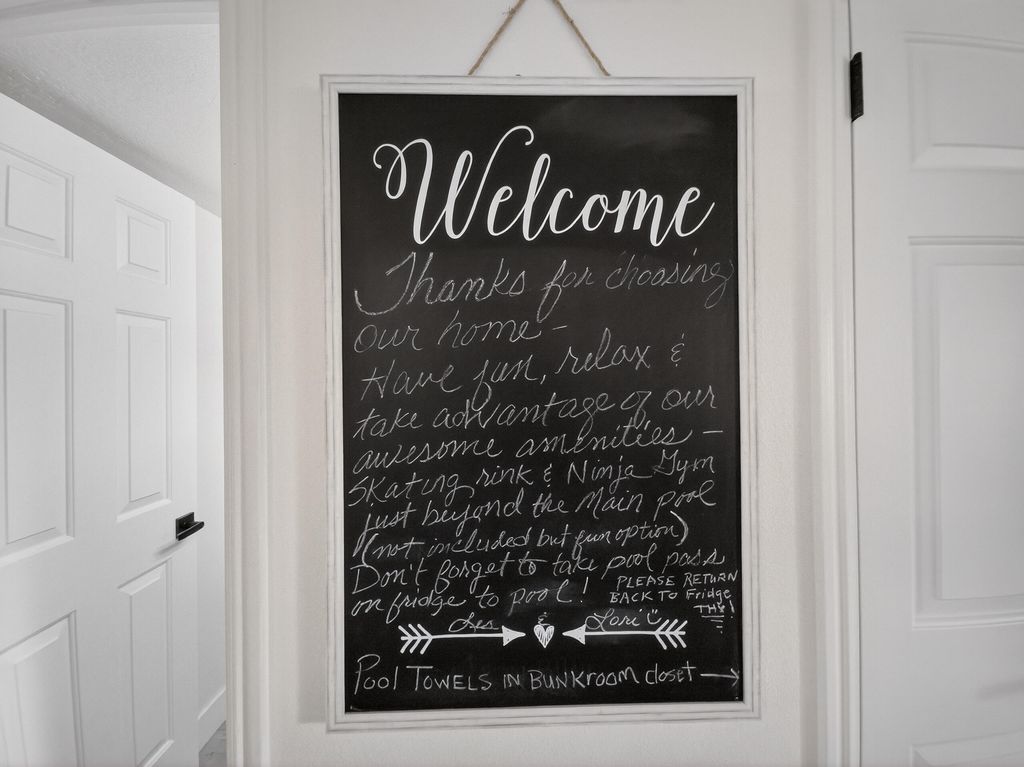 Welcome
Thanks for choosing
our home -
Have fun, relax &
take advantage of our
awesome amenities -
Skating rink & Ninja Gym
just beyond the Main pool
(not included but fun option)
Don't forget to take pool pass
on fridge to pool! PLEASE RETURN
BACK TO Fridge
THX!
Les & Lori
Pool TOWELS IN BUNKROOM closet →